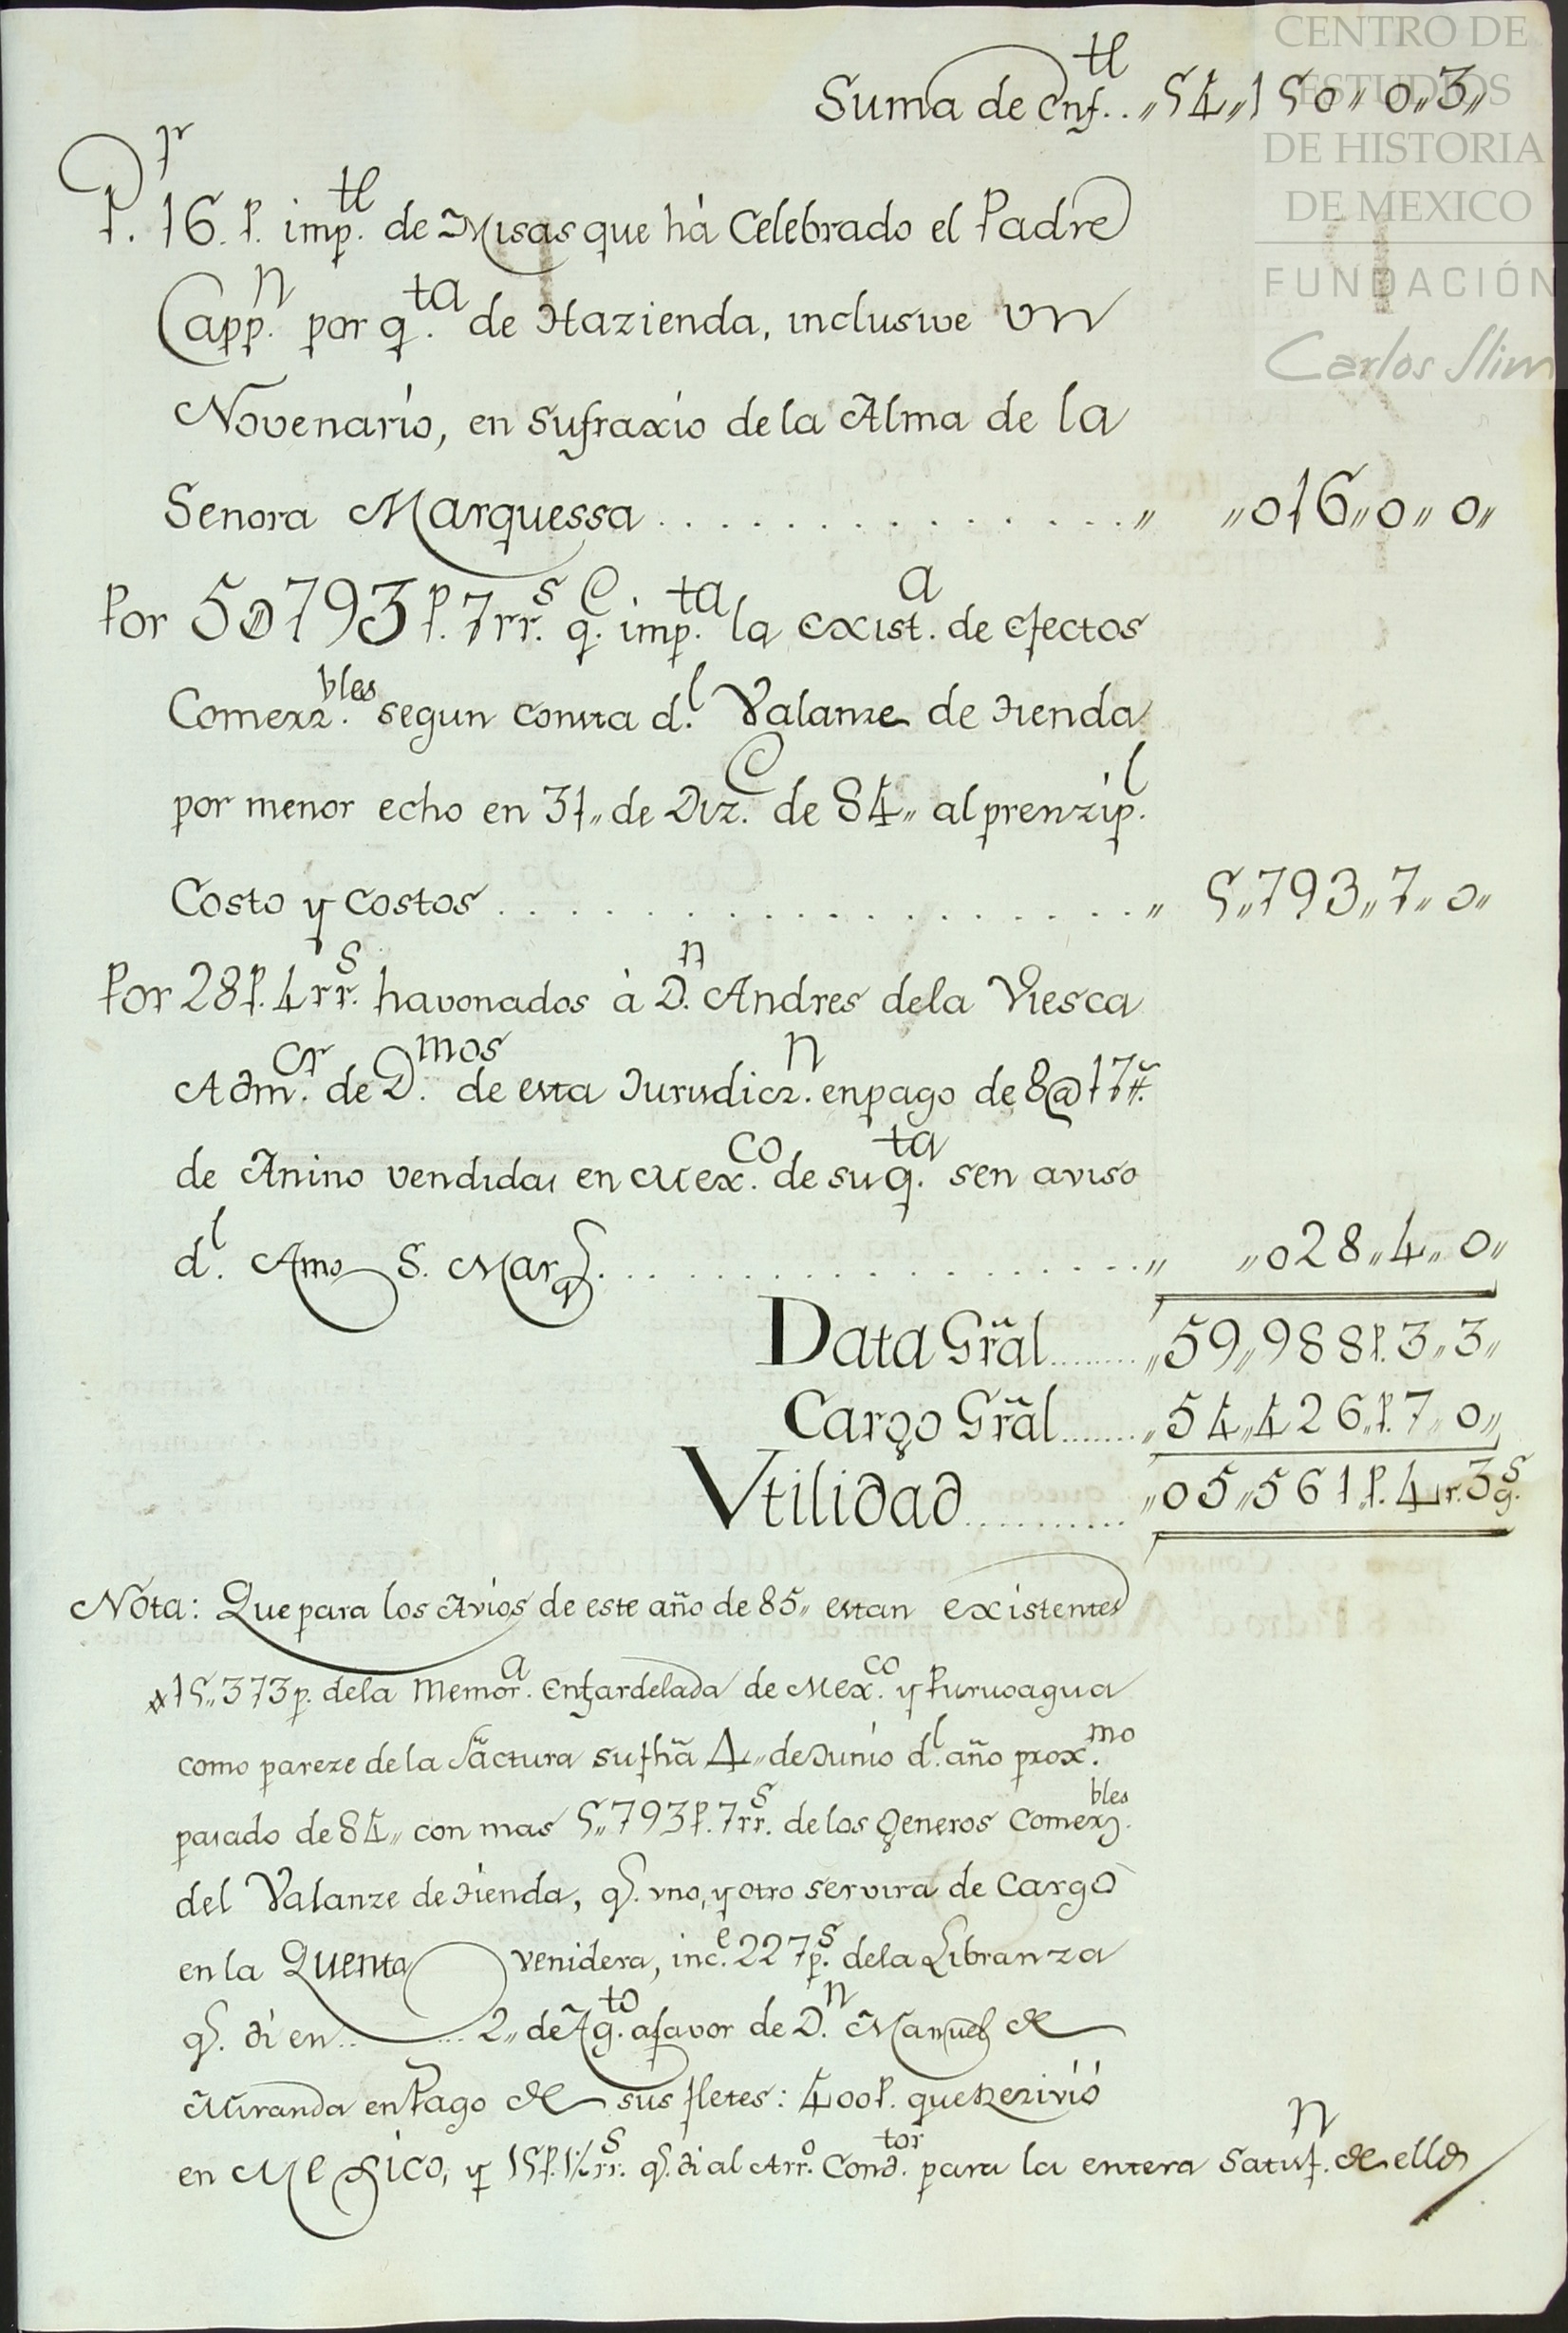 CENTRO DE
ESTUDIOS
DE HISTORIA
DE MEXICO
FUNDACIÓN
Carlos Slim
Suma de Enf.tl .. „54„150„0„3„
Pr. 16 p. imp.tl de Misas que há Celebrado el Padre
Capp.n por q.ta de Hazienda, inclusive un
Novenario, en sufraxio de la Alma de la
Senora Marquessa . . . . . . . . . . . . . . . „ „016„0„0„
Por 5@793 p. 7 rr.s q.e imp.ta la exist.a de efectos
Comerz.bles segun consta d.l Valanze de tienda
por menor echo en 31„ de Diz.e de 84„ al prenzip.l
Costo y costos . . . . . . . . . . . . . . . . . . „ 5„793„7„0„
Por 28 p. 4 rr.s havonados à D.n Andres dela Viesca
Adm.or de D.mos de esta Jurisdicz.n en pago de 8@17 #.
de Anino vendidas en Mex.co de su q.ta sen aviso
d.l Amo S. Marq.s . . . . . . . . . . . . . . . . . . „ „028„4„0„
Data Gr̃al ........ „59„988 p. 3„3„
Cargo Gr̃al ....... „54„426„p. 7„0„
Vtilidad .......... „05„561„p. 4 r. 3 g.s
Nota: Que para los Avios de este año de 85„ estan existentes
15„373 p. dela Memor.a enfardelada de Mex.co y Puruoagua
como pareze de la Factura su fha 4„ de Junio d.l año prox.mo
pasado de 84„ con mas 5„793 p. 7 rr.s de los Generos Comerz.bles
del Valanze de tienda, q.e uno, y otro servira de Cargo
en la Quenta venidera, inc.e 227 p.s dela Libranza
q.e di en .. .... 2„ de Ag.to a favor de D.n Manuel de
Miranda en Pago de sus fletes: 400 p. que Rezivió
en Mexico, y 15 p. 1½ rr.s q.e di al Arr.o Cond.tor para la entera Satisf.n de ellos